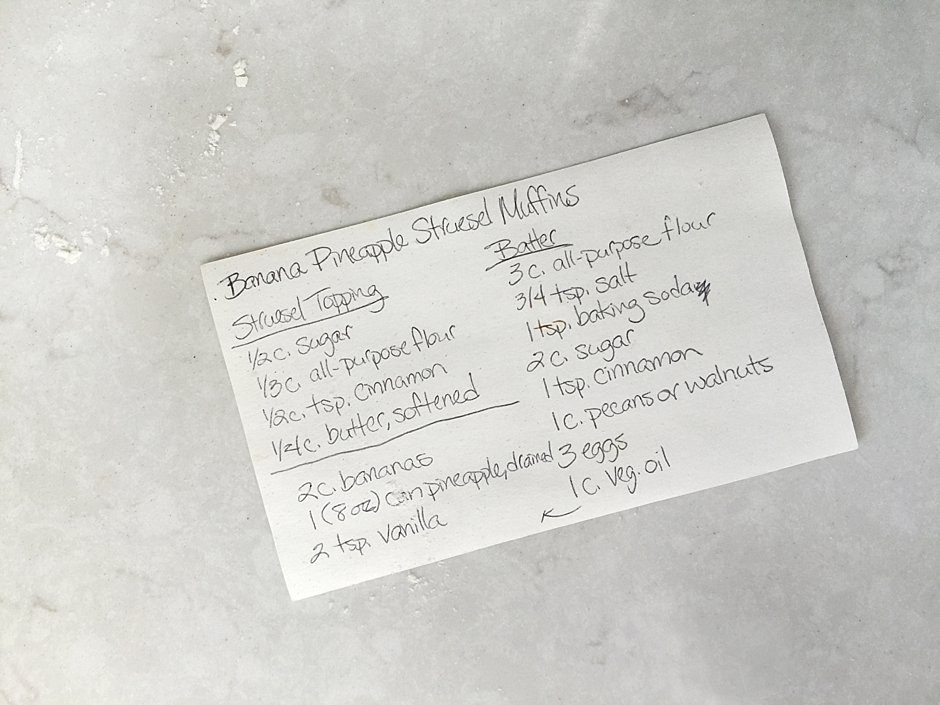 Banana Pineapple Struesel Muffins
Struesel Topping
1/2 c. sugar
1/3 c. all-purpose flour
1/2 c. tsp. cinnamon
1/4 c. butter, softened
Batter
3 c. all-purpose flour
3/4 tsp. salt
1 tsp. baking soda
2 c. sugar
1 tsp. cinnamon
1 c. pecans or walnuts
3 eggs
1 c. veg. oil
2 c. bananas
1 (8 oz) can pineapple, drained
2 tsp. vanilla